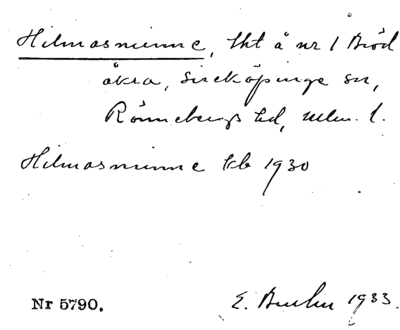 Hilmasminne, lht å nr 1 Bröd
åkra, Sireköpinge sn,
Rönnebergs hd, Mlm. l.
Hilmasminne kb 1930
Nr 5790. E. 1933.